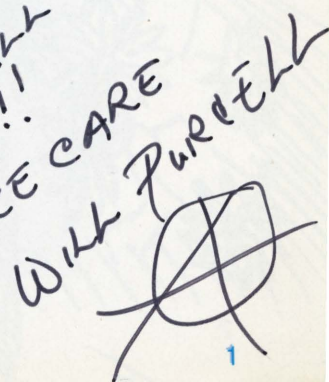 !!
CARE
WILL PURCELL
1